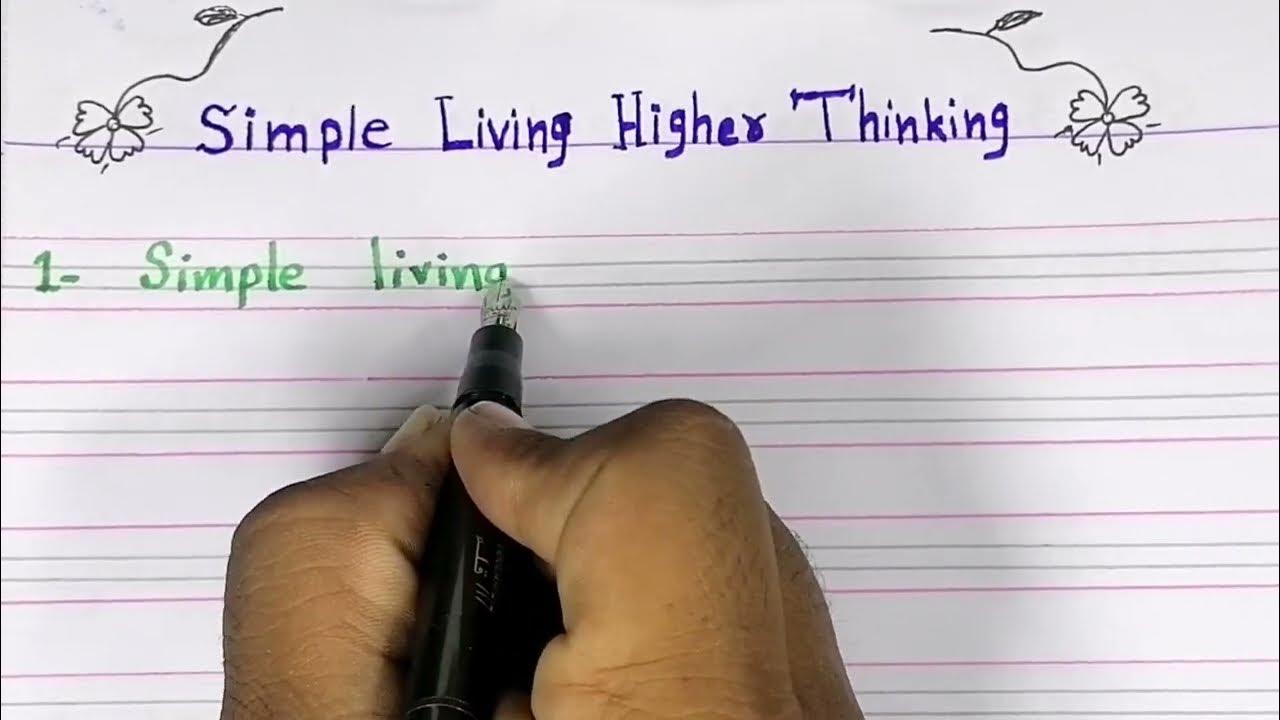 Simple Living Higher Thinking
1- Simple living